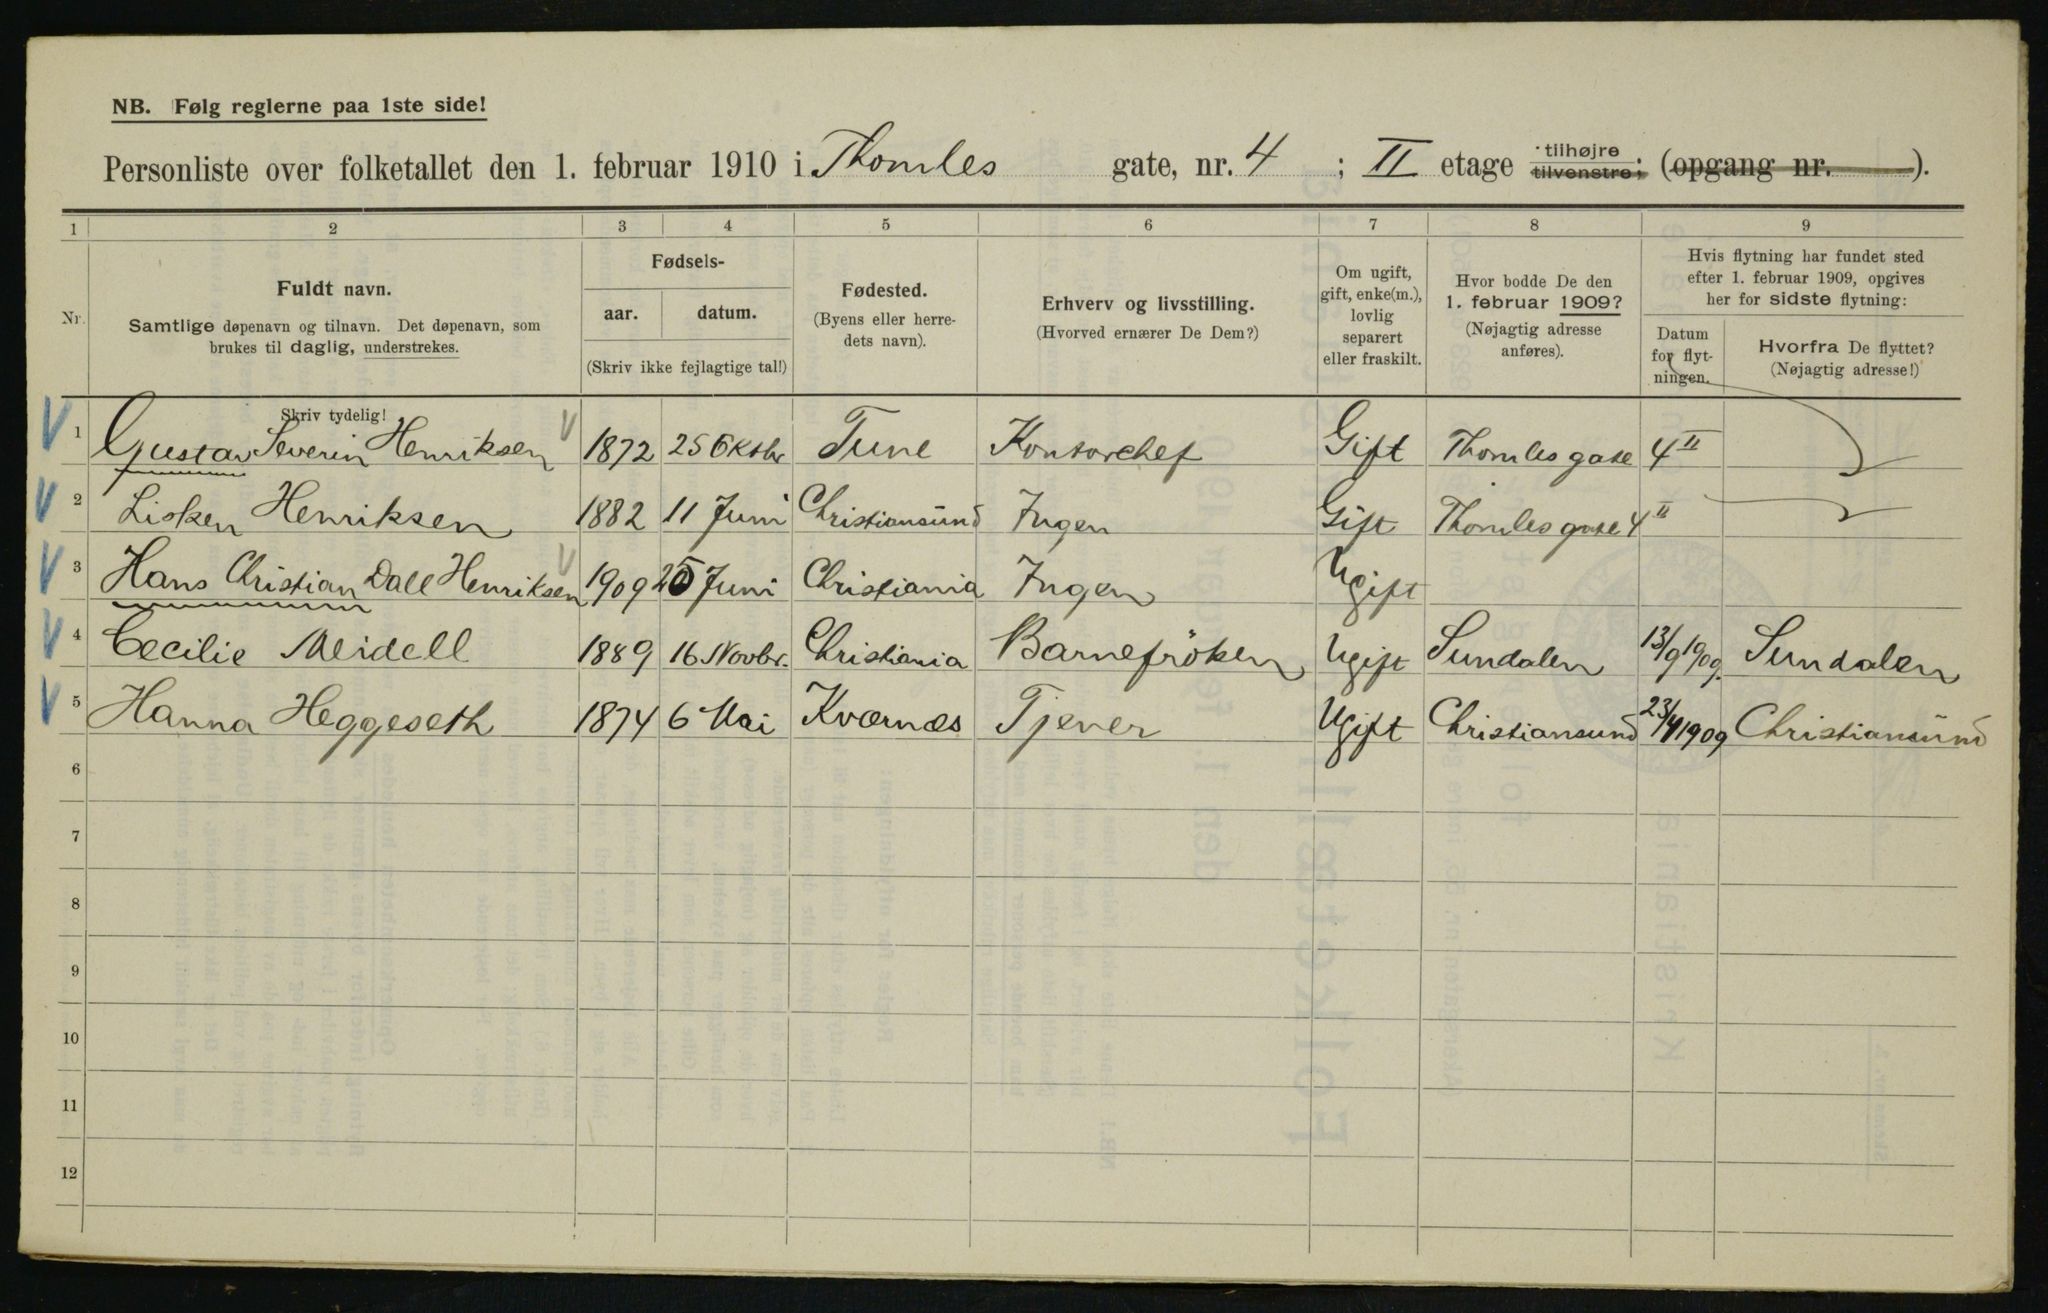 NB. Følg reglerne paa 1ste side!
Personliste over folketallet den 1. februar 1910 i Thomles gate, nr. 4 ; II etage tilhøjre tilvenstre; (opgang nr. ).
1 2 3 4 5 6 7 8 9
Nr.
Fuldt navn.
Samtlige døpenavn og tilnavn. Det døpenavn, som
brukes til daglig, understrekes.
Fødsels-
aar. datum.
(Skriv ikke fejlagtige tal!)
Fødested.
(Byens eller herre-
dets navn).
Erhverv og livsstilling.
(Hvorved ernærer De Dem?)
Om ugift,
gift, enke(m.),
lovlig
separert
eller fraskilt.
Hvor bodde De den
1. februar 1909?
(Nøjagtig adresse
anføres).
Hvis flytning har fundet sted
efter 1. februar 1909, opgives
her for sidste flytning:
Datum
for flyt-
ningen.
Hvorfra De flyttet?
(Nøjagtig adresse!)
Skriv tydelig!
1 Gustav Severin Henriksen 1872 25 Oktbr Tune Kontorchef Gift Thomles gate 4 II
2 Lisken Henriksen 1882 11 Juni Christiansund Ingen Gift Thomles gate 4 II
3 Hans Christian Dall Henriksen 1909 25 Juni Christiania Ingen Ugift
4 Cecilie Meidell 1889 16 Novbr. Christiania Barnefröken Ugift Sundalen 13/9 1909. Sundalen
5 Hanna Heggeseth 1874 6 Mai Kværnæs Tjener Ugift Christiansund 23/4 1909 Christiansund
6
7
8
9
10
11
12